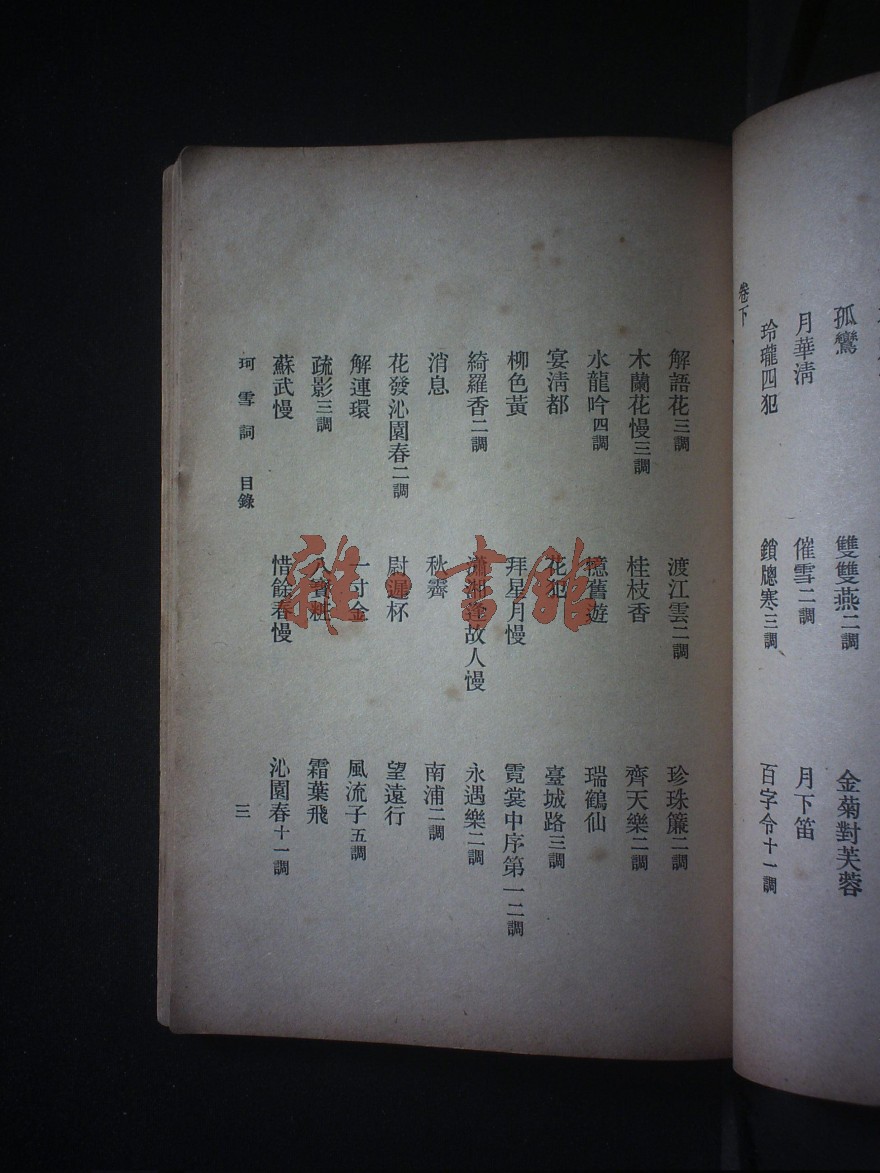 孤鸞 雙雙燕二調 金菊對芙蓉
月華清 催雪二調 月下笛
玲瓏四犯 鎖牕寒三調 百字令十一調
卷下
解語花三調 渡江雲二調 珍珠簾二調
木蘭花慢三調 桂枝香 齊天樂二調
水龍吟四調 憶舊遊 瑞鶴仙
宴清都 花犯 臺城路三調
柳色黃 拜星月慢 霓裳中序第一二調
綺羅香二調 瀟湘逢故人慢 永遇樂二調
消息 秋霽 南浦二調
花發沁園春二調 尉遲杯 望遠行
解連環 一寸金 風流子五調
疏影三調 八寶粧 霜葉飛
蘇武慢 惜餘春慢 沁園春十一調
珂雪詞 目錄 三
雜·書館